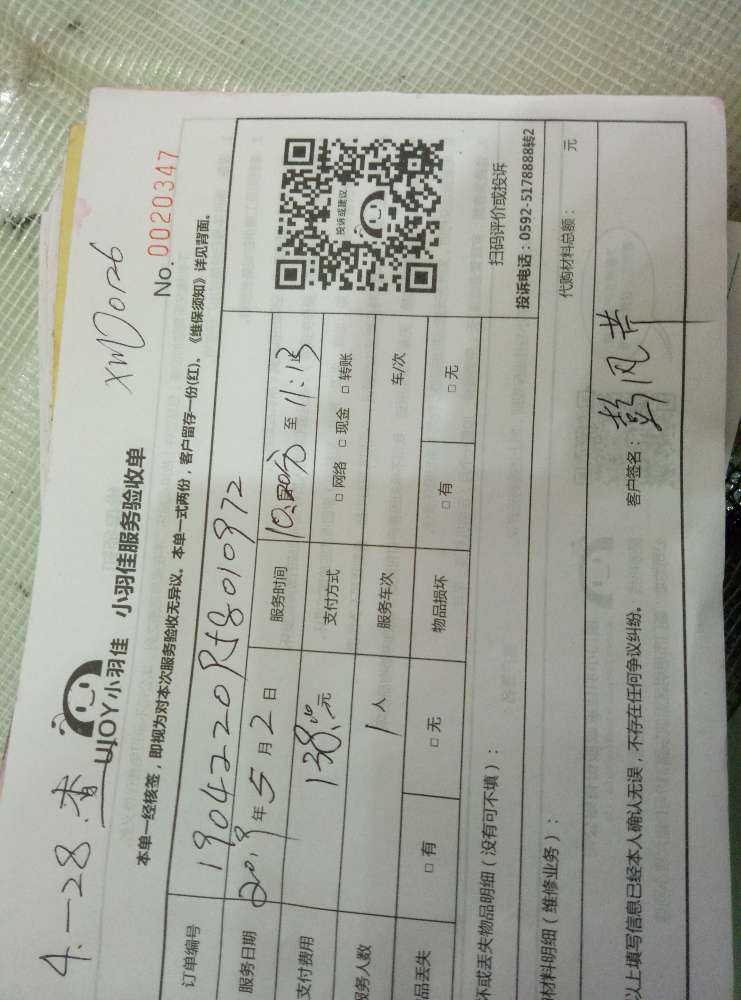 4.-28.
UJOY小羽佳 小羽佳服务验收单
XMJ0126
No. 0020347
本单一经核签，即视为对本次服务验收无异议。本单一式两份，客户留存一份(红)。《维保须知》详见背面。
订单编号 190422
服务日期 2019年5月2日 服务时间 至 11:15
支付费用 138.00元 支付方式 □ 网络 □ 现金 □ 转账
服务人数 1人 服务车次 车/次
品丢失 □ 有 □ 无 物品损坏 □ 有 □ 无
投诉或建议
扫码评价或投诉
投诉电话：0592-5178888转2
坏或丢失物品明细（没有可不填）：
材料明细（维修业务）： 代购材料总额： 元
以上填写信息已经本人确认无误，不存在任何争议纠纷。 客户签名：彭凤